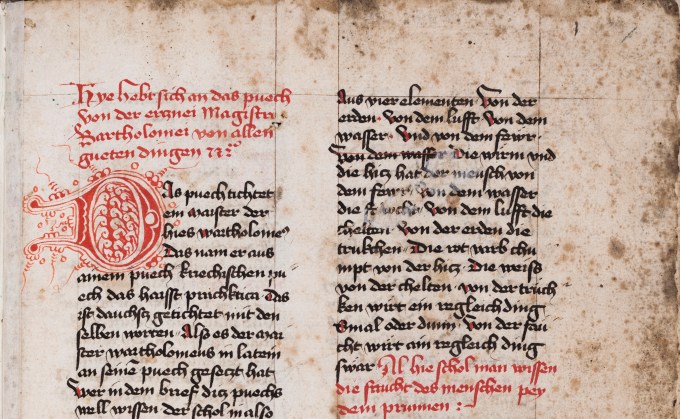 Hye hebt sich an das puech
von der erznei Magistri
Bartholomei von allen
gueten dingen
Das puech tichtet
ein maister der
hies wartholome9
Das nam er aus
ainem puech kriechischen pu
ech das haisst pracktica Das
ist dauchsz getichtet mit den
selben worten Also es der mai
ster wartholomeus in latein
an seine puech gesetzt hat
Wer in dem brief ditz puechs
well wissen der schol in also
Aus vier elementen · Von der
erden · von dem lufft · von dem
wasser · Und von dem fewr ·
Von dem wasser Die wirm vnd
die hicz hat der mensch von
dem fewr · von dem wasser
die · von dem lufft die
chelten · Von der erden die
trukchen · Die rot varb chu
mpt von der hicz · Die weiss
von der chelten · von der truch
ken wirt ein regleich ding
Smal oder dunn · Von der feu
cht wirt ain regleich ding
swar Al hie schol man wissen
die feucht des menschen pey
dem prunnen :